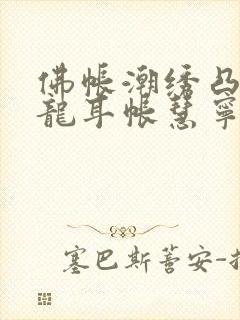 佛帐潮绣凸
龍耳帐慧寧
塞巴斯蒈安-